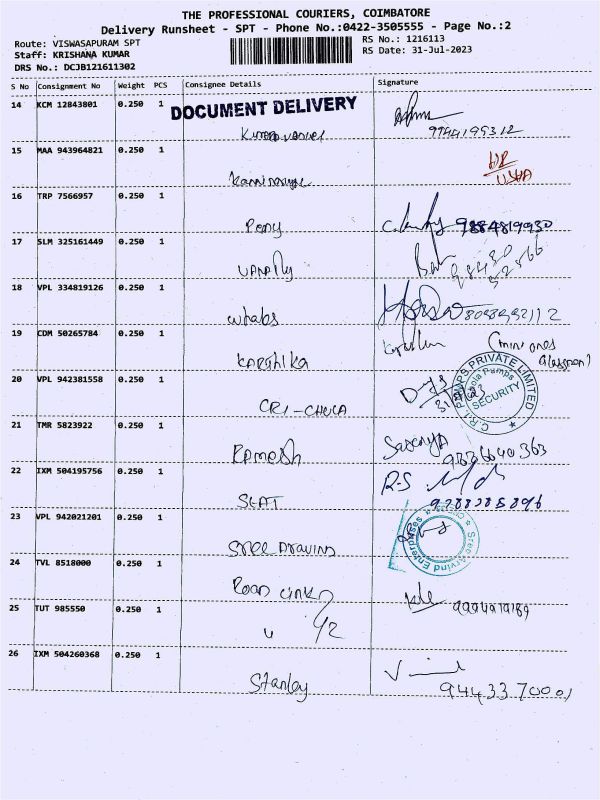 THE PROFESSIONAL COURIERS, COIMBATORE
Delivery Runsheet - SPT - Phone No.:0422-3505555 - Page No.:2
Route: VISWASAPURAM SPT
Staff: KRISHANA KUMAR
DRS No.: DCJB121611302
RS No.: 1216113
RS Date: 31-Jul-2023
S No Consignment No Weight PCS Consignee Details Signature
14 KCM 12843801 0.250 1
DOCUMENT DELIVERY
9744199312
15 MAA 943964821 0.250 1
16 TRP 7566957 0.250 1
Pony 9884819930
17 SLM 325161449 0.250 1
98430
52566
18 VPL 334819126 0.250 1
whabs
19 CDM 50265784 0.250 1
KARTHIKA
20 VPL 942381558 0.250 1
CRI-CHOLA
C.R.I. PUMPS PRIVATE LIMITED
SECURITY
21 TMR 5823922 0.250 1
Ramesh
22 IXM 504195756 0.250 1
SEAT R-S
23 VPL 942021201 0.250 1
SREE ARAVIND
Sree Arvind Enterprises
24 TVL 8518000 0.250 1
Road Link
25 TUT 985550 0.250 1
26 IXM 504260368 0.250 1
Stanley
94433 70001